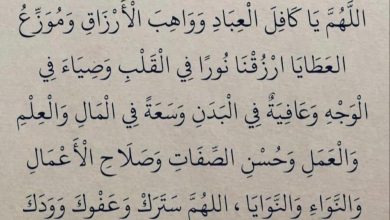 اللَّهُمَّ يَا كَافِلَ الْعِبَادِ وَوَاهِبَ الْأَرْزَاقِ وَمُوَزِّعَ
العَطَايَا ارْزُقْنَا نُورًا فِي الْقَلْبِ وَضِيَاءَ فِي
الْوَجْهِ وَعَافِيَةٌ فِي الْبَدَنِ وَسَعَةً فِي الْمَالِ وَالْعِلْمِ
وَالْعَمَلِ وَحُسْنِ الصِّفَاتِ وَصَلَاحِ الْأَعْمَالِ
وَالنَّوَاءِ وَالنَّوَايَا ، اللهُمَّ سَتَرَكْ وَعَفْوكَ وَوَدَكَ